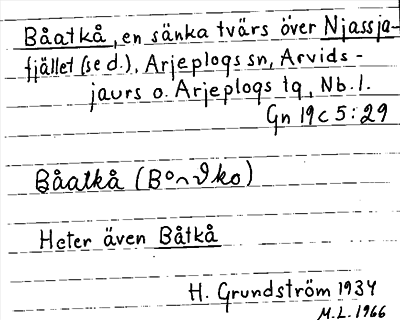 Båatkå, en sänka tvärs över Njassja-
fjället (se d.), Arjeplogs sn, Arvids-
jaurs o. Arjeplogs tg, Nb. l.
Gn 19c 5:29
Båatkå (B°∩ϑko)
Heter även Båtkå
H. Grundström 1934
M.L. 1966